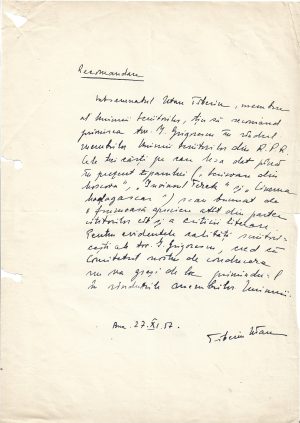 Recomandare
Subsemnatul Utan Tiberiu, membru
al Uniunii Scriitorilor, țin să recomand
primirea tov. I. Grigorescu în rândul
membrilor Uniunii Scriitorilor din R.P.R.
Cele trei cărți pe care le-a dat până
în prezent tiparului ("Scrisoare din
Moscova", " Terek" și "Linema
Madagascar") s-au bucurat de
o frumoasă apreciere atât din partea
cititorilor cât și a criticii literare.
Pentru evidentele calități scriitori-
cești ale tov. I. Grigorescu, cred că
Comitetul nostru de conducere
nu va greși de loc primindu-l
în rândurile membrilor Uniunii.
Buc. 27.XI.57.
Tiberiu Utan